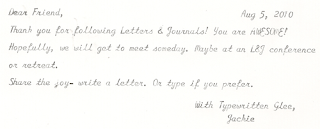 Dear Friend, Aug 5, 2010
Thank you for following Letters & Journals! You are AWESOME!
Hopefully, we will get to meet someday. Maybe at an L&J conference
or retreat.
Share the joy- write a letter. Or type if you prefer.
With Typewritten Glee,
Jackie